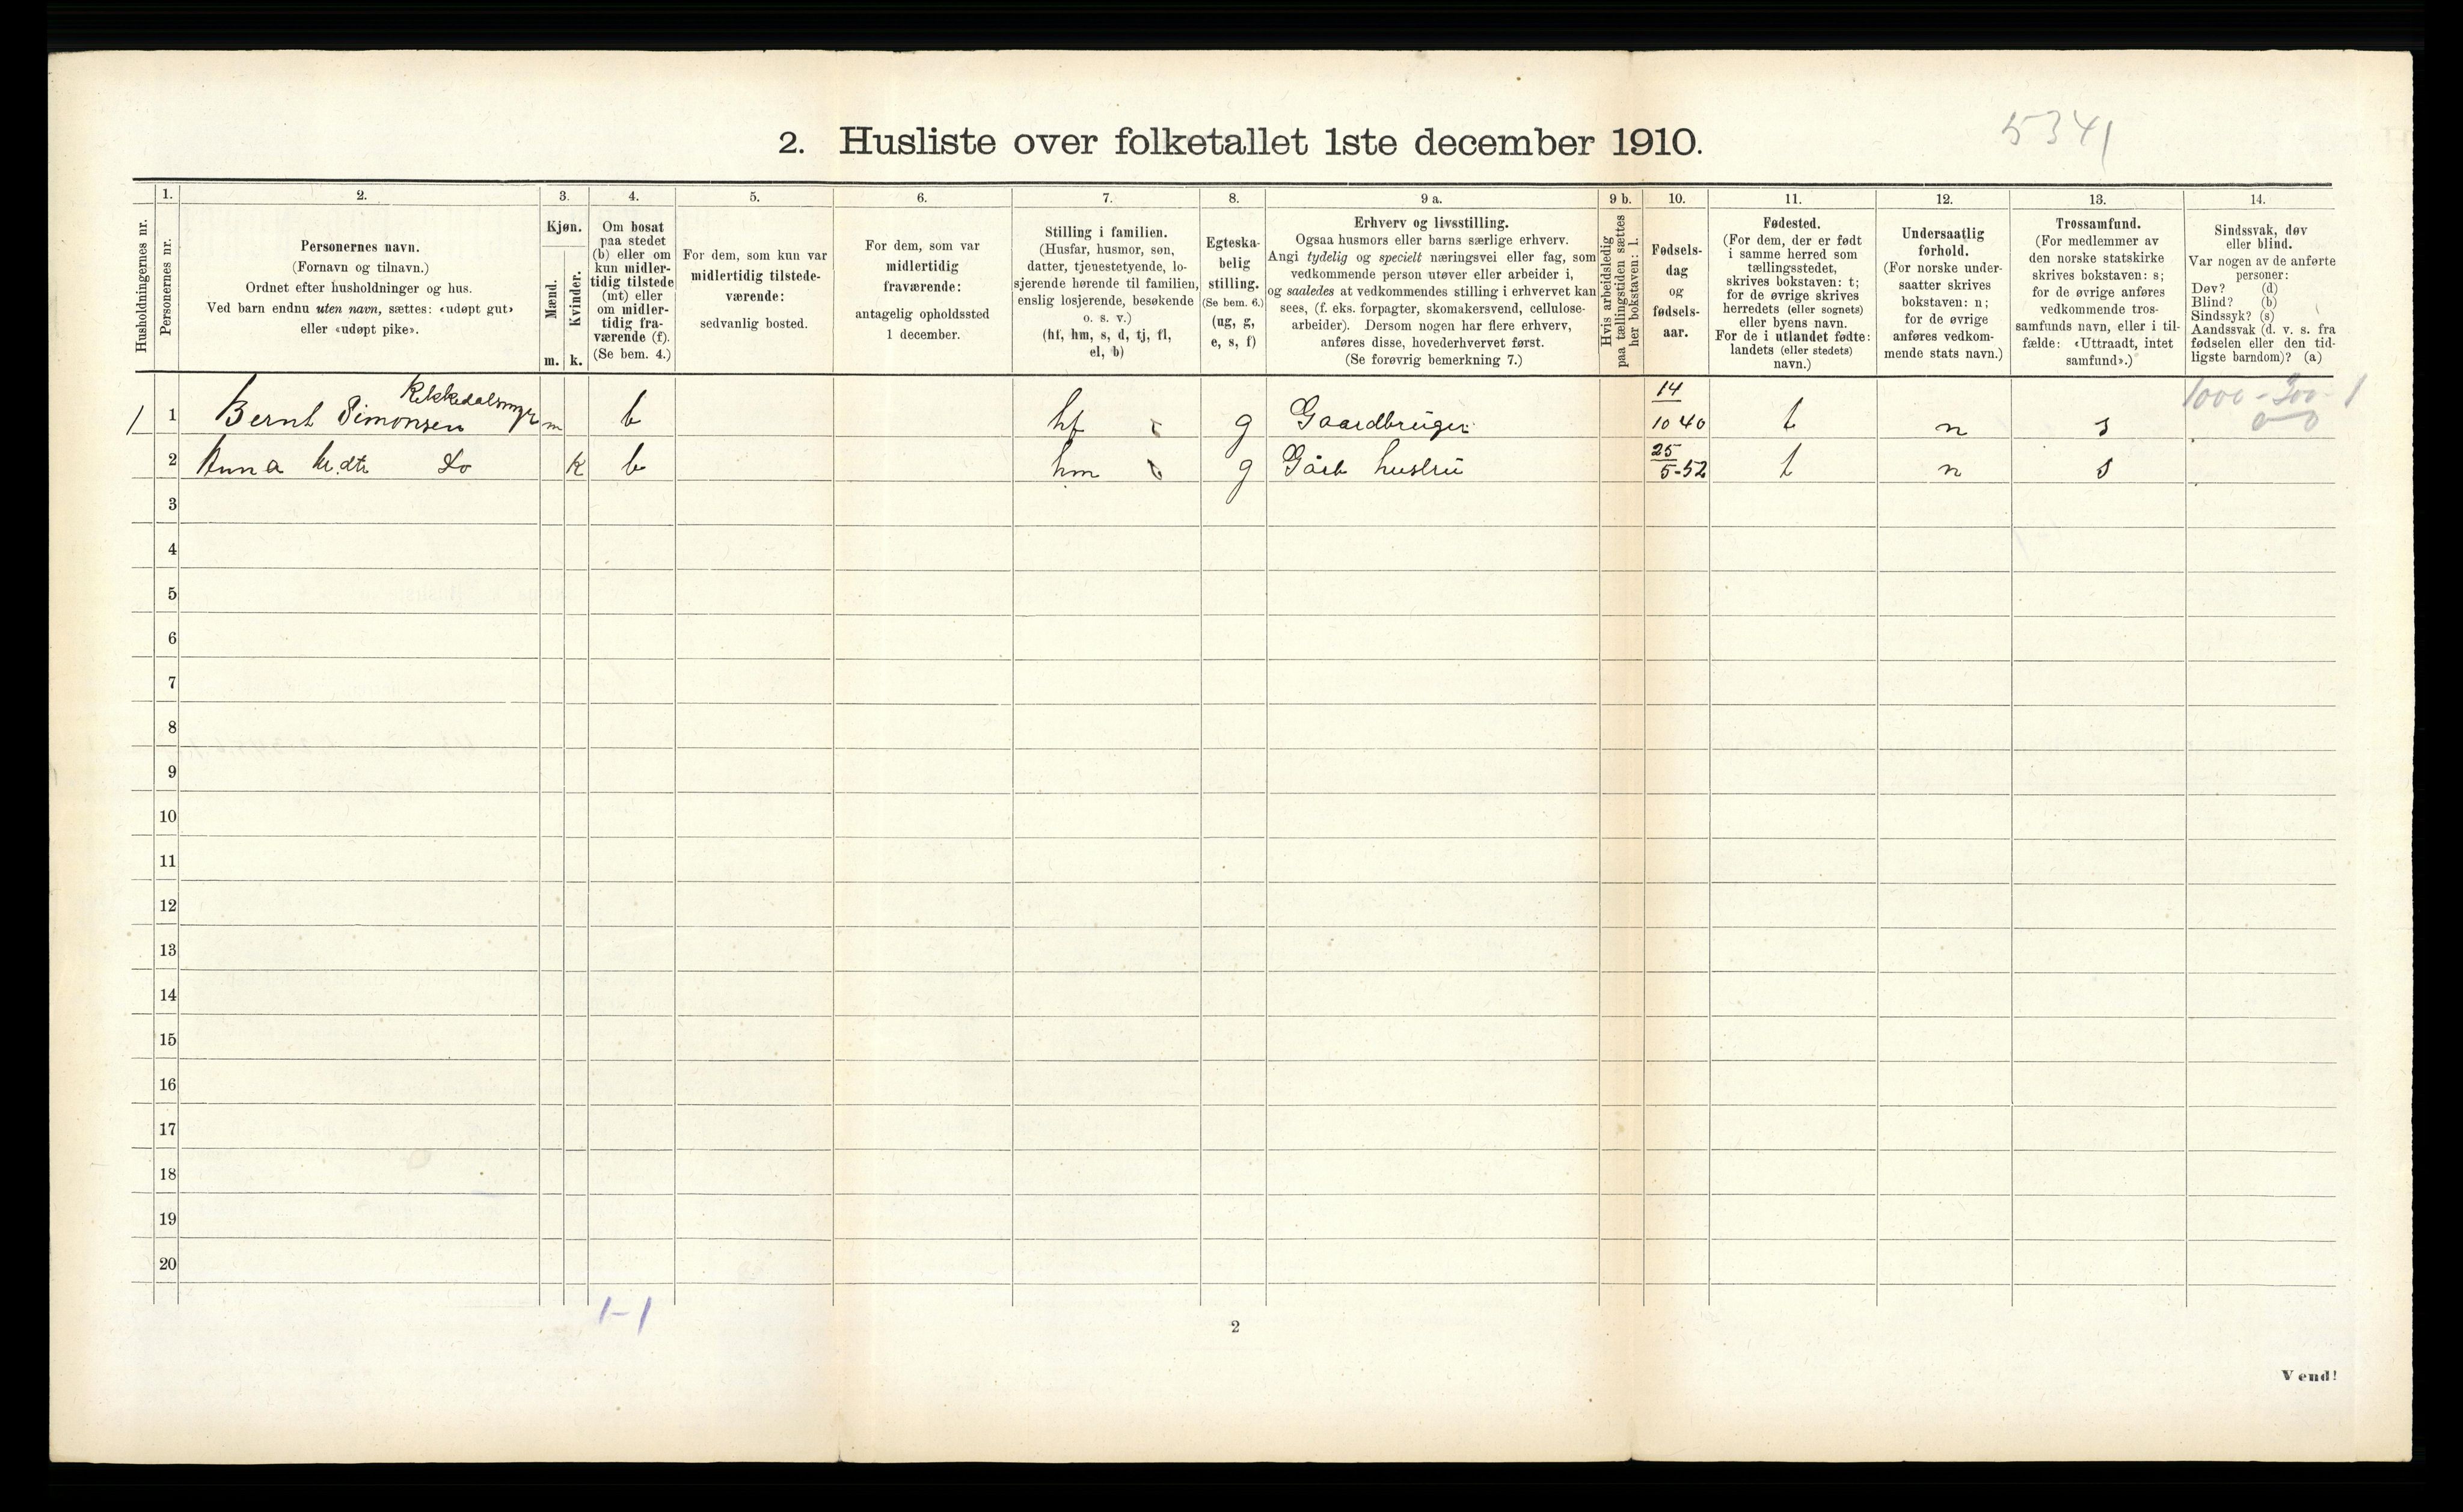 5341
2. Husliste over folketallet 1ste december 1910.
Husholdningernes nr.
1.
Personernes nr.
2.
Personernes navn.
(Fornavn og tilnavn.)
Ordnet efter husholdninger og hus.
Ved barn endnu uten navn, sættes: «udøpt gut»
eller «udøpt pike».
3.
Kjøn.
Mænd.
m.
Kvinder.
k.
4.
Om bosat
paa stedet
(b) eller om
kun midler-
tidig tilstede
(mt) eller
om midler-
tidig fra-
værende (f).
(Se bem. 4.)
5.
For dem, som kun var
midlertidig tilstede-
værende:
sedvanlig bosted.
6.
For dem, som var
midlertidig
fraværende:
antagelig opholdssted
1 december.
7.
Stilling i familien.
(Husfar, husmor, søn,
datter, tjenestetyende, lo-
sjerende hørende til familien,
enslig losjerende, besøkende
o. s. v.)
(hf, hm, s, d, tj, fl,
el, b)
8.
Egteska-
belig
stilling.
(Se bem. 6.)
(ug, g,
e, s, f)
9 a.
Erhverv og livsstilling.
Ogsaa husmors eller barns særlige erhverv.
Angi tydelig og specielt næringsvei eller fag, som
vedkommende person utøver eller arbeider i,
og saaledes at vedkommendes stilling i erhvervet kan
sees, (f. eks. forpagter, skomakersvend, cellulose-
arbeider). Dersom nogen har flere erhverv,
anføres disse, hovederhvervet først.
(Se forøvrig bemerkning 7.)
9 b.
Hvis arbeidsledig
paa tællingstiden sættes
her bokstaven: l.
10.
Fødsels-
dag
og
fødsels-
aar.
11.
Fødested.
(For dem, der er født
i samme herred som
tællingsstedet,
skrives bokstaven: t;
for de øvrige skrives
herredets (eller sognets)
eller byens navn.
For de i utlandet fødte:
landets (eller stedets)
navn.)
12.
Undersaatlig
forhold.
(For norske under-
saatter skrives
bokstaven: n;
for de øvrige
anføres vedkom-
mende stats navn.)
13.
Trossamfund.
(For medlemmer av
den norske statskirke
skrives bokstaven: s;
for de øvrige anføres
vedkommende tros-
samfunds navn, eller i til-
fælde: «Uttraadt, intet
samfund».)
14.
Sindssvak, døv
eller blind.
Var nogen av de anførte
personer:
Døv? (d)
Blind? (b)
Sindssyk? (s)
Aandssvak (d. v. s. fra
fødselen eller den tid-
ligste barndom)? (a)
1 1 Bernt Simonsen m b hf g Gaardbruger 14/10 40 t n s
2 Anna Do k b hm g Gårb hustru 25/5-52 t n s
3
4
5
6
7
8
9
10
11
12
13
14
15
16
17
18
19
20
1-1
2
Vend!